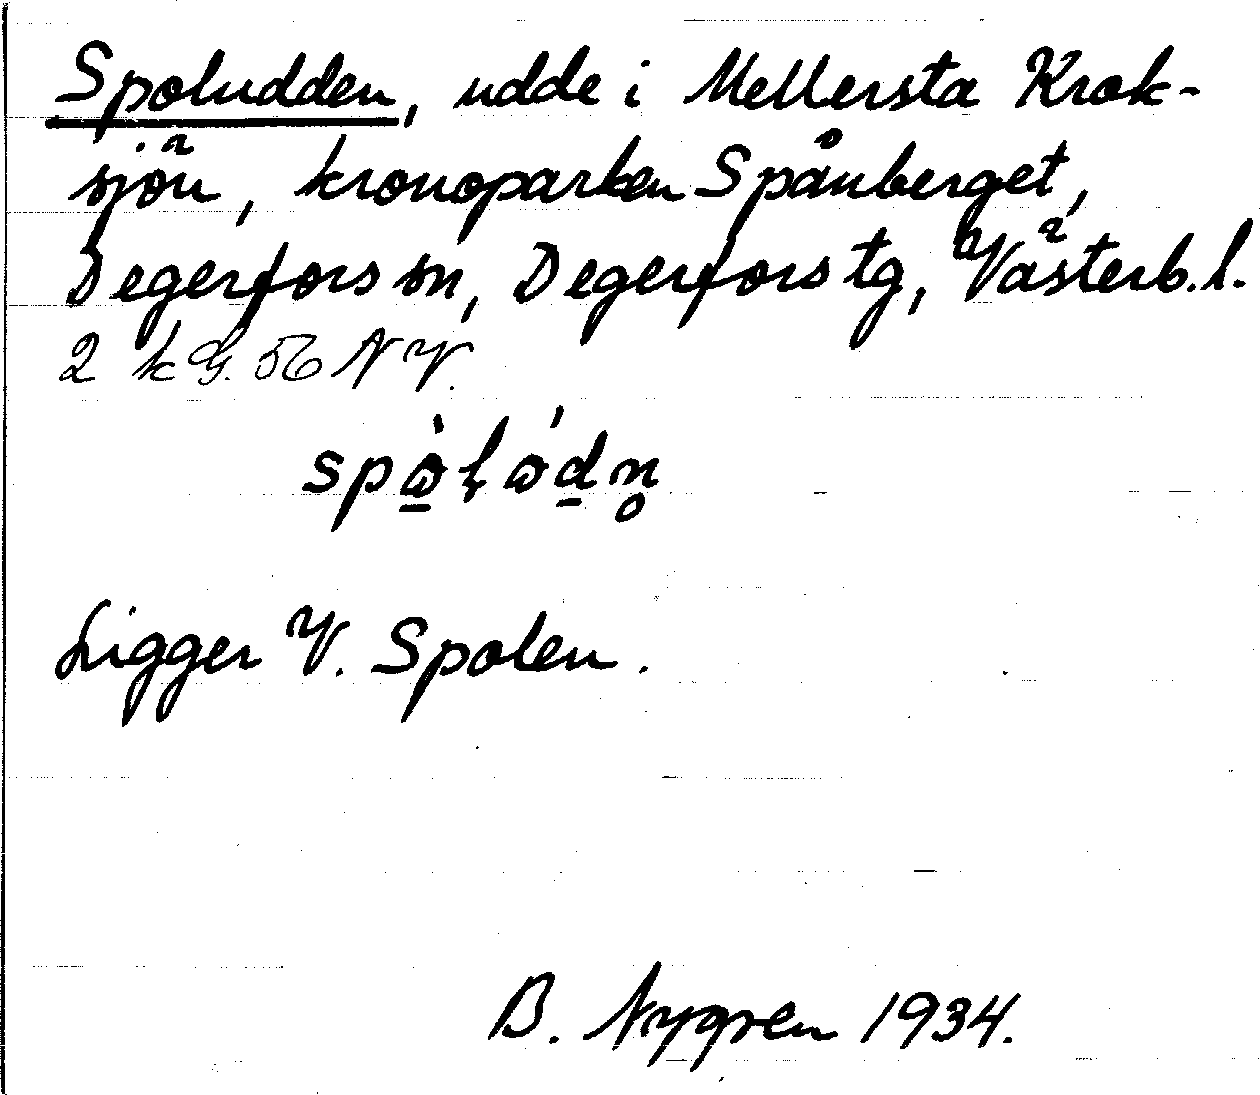 Spoludden, udde i Mellersta Krok-
sjön, kronoparken Spånberget,
Degerfors sn, Degerfors tg, Västerb. l.
2 kG. 56 NV.
Ligger V. Spolen.
B. Nygren 1934.